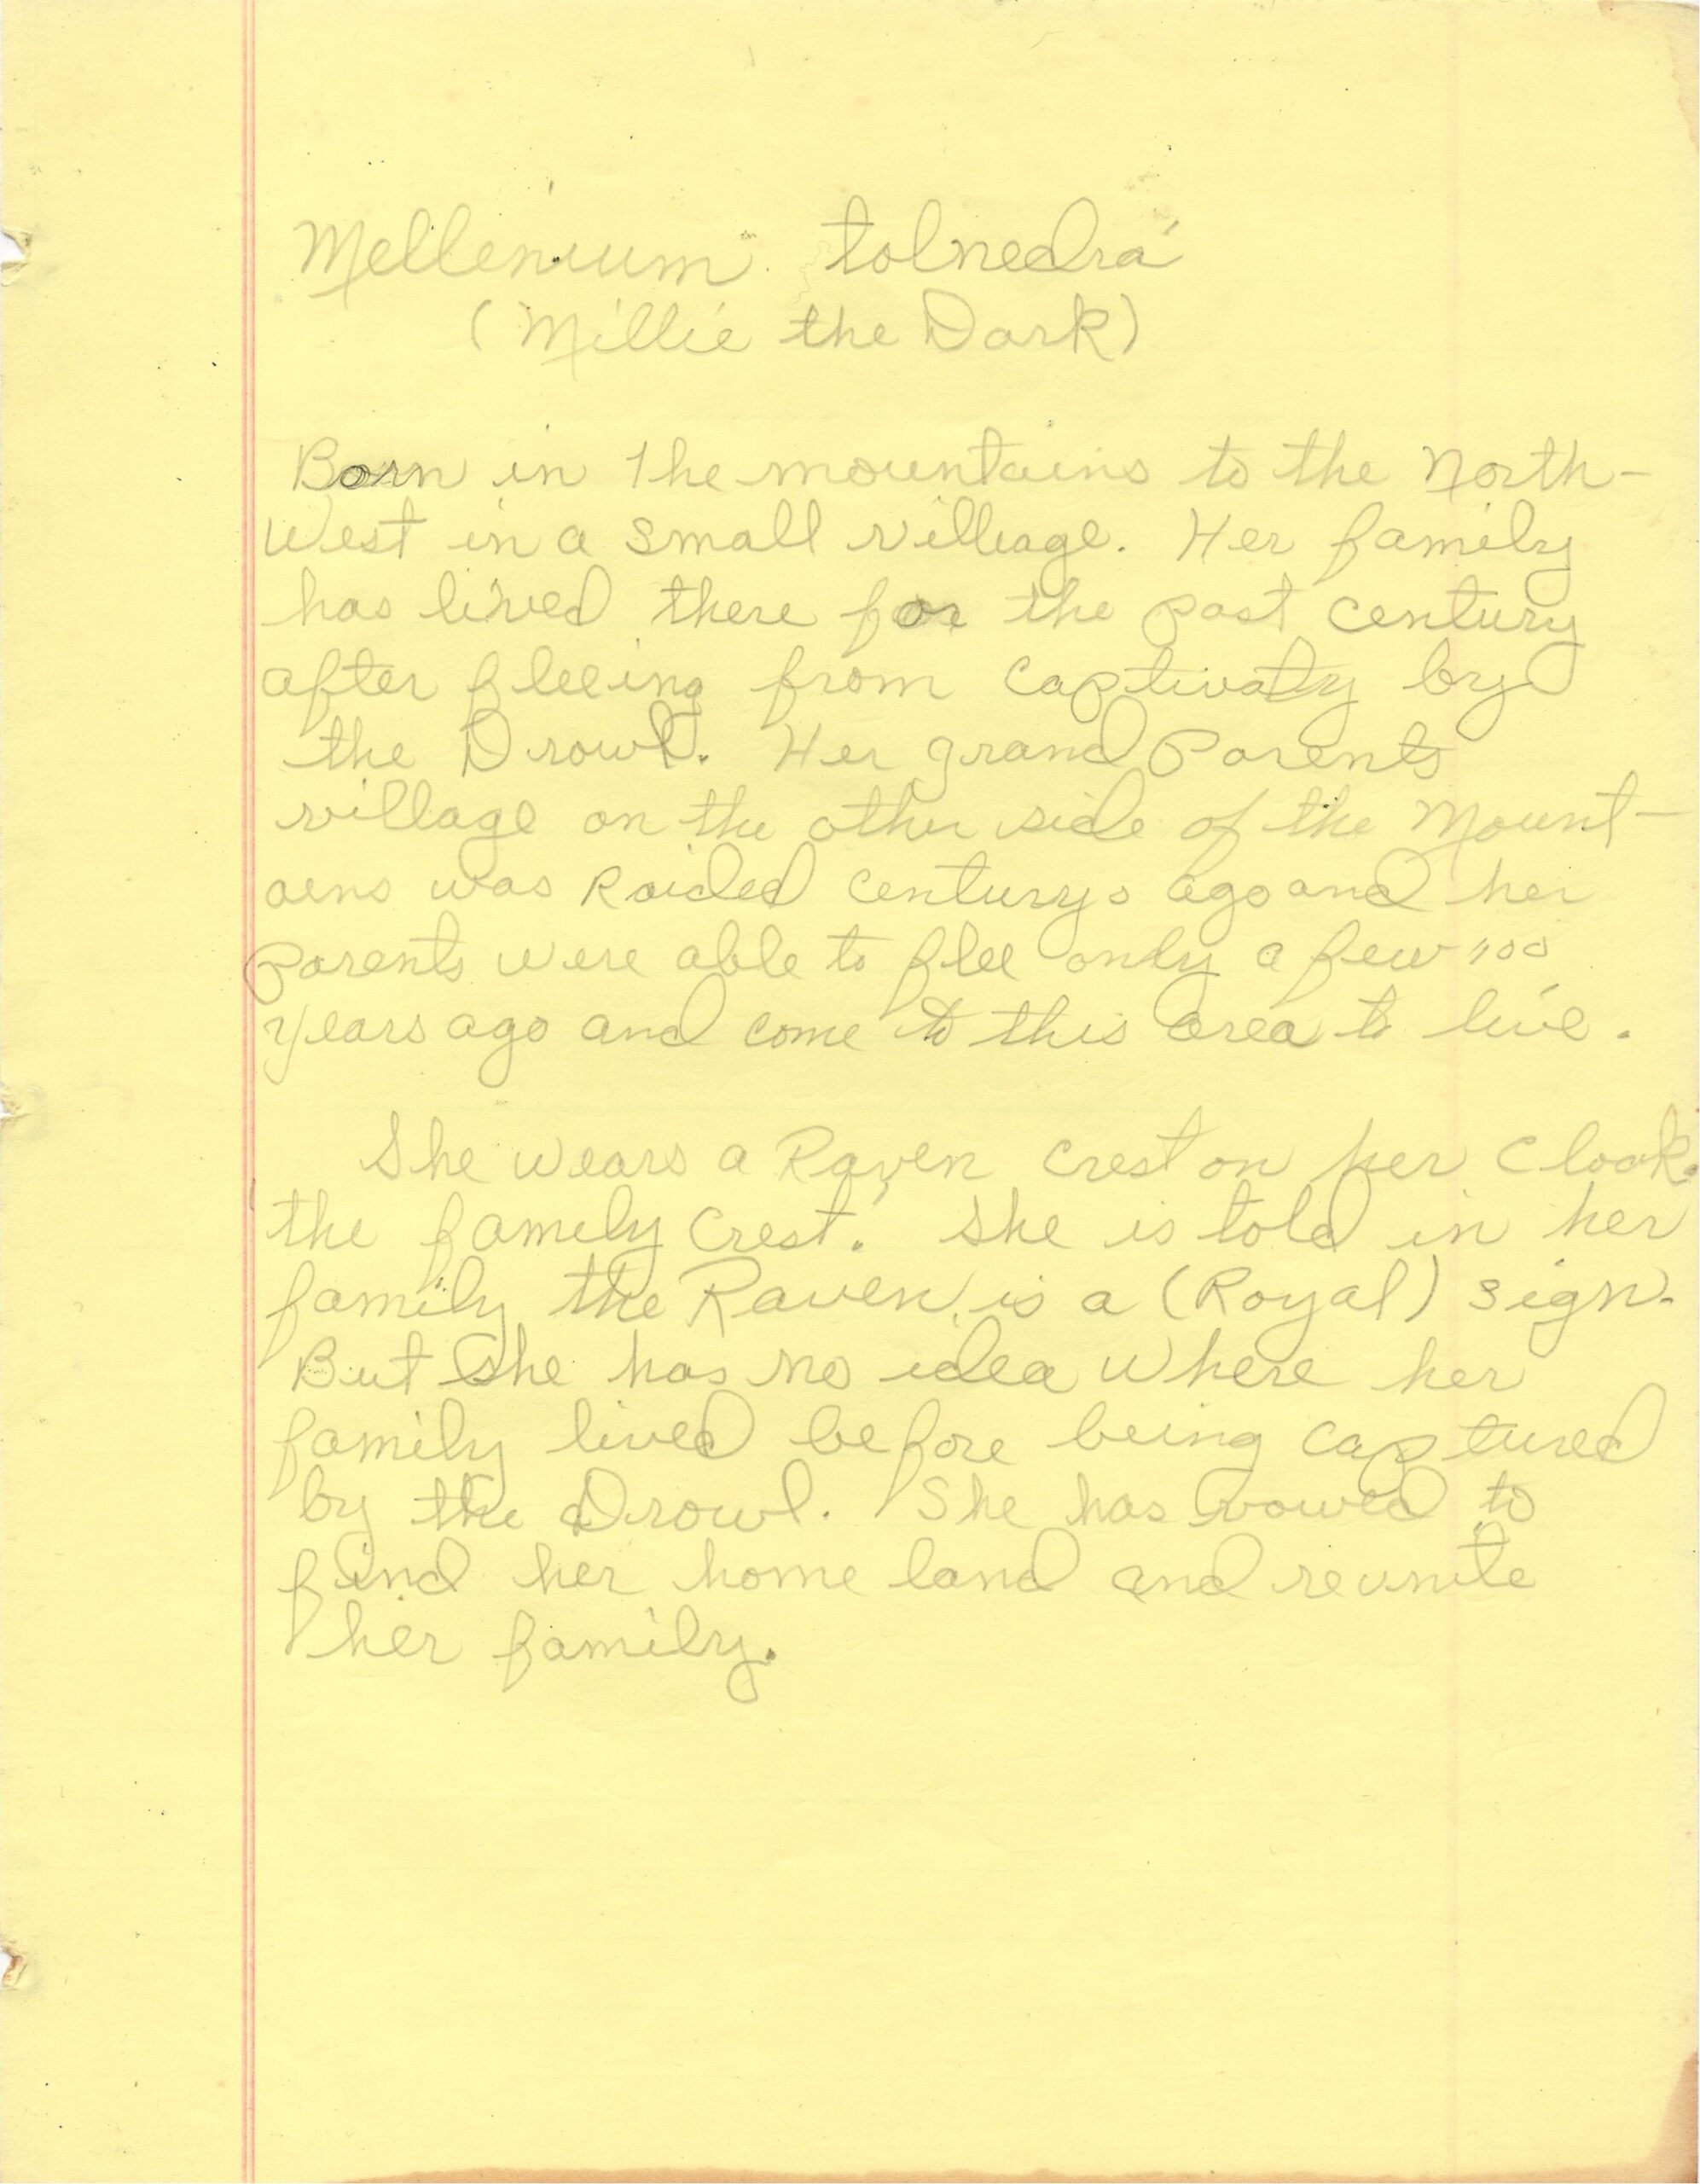 Mellenium tolnedra
(Millie the Dark)
Born in the mountains to the North-
West in a small villiage. Her family
has lived there for the past century
after fleeing from captivaty by
the Drowl. Her grand Parents
village on the other side of the Mount-
aens was Raided centurys ago and her
Parents were able to flee only a few 100
years ago and come to this area to live.
She wears a Raven crest on her cloak.
the family crest. She is told in her
family the Raven is a (Royal) sign.
But She has no idea where her
family lived before being captured
by the Drowl. She has vowed to
find her home land and reunite
her family.